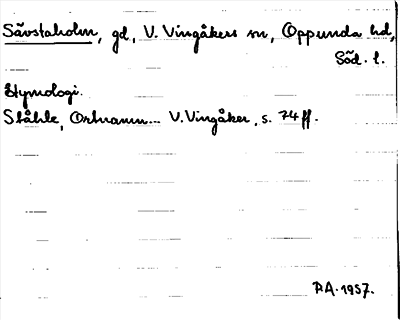 Sävstaholm, gd, V. Vingåkers sn, Oppunda hd,
Söd. l.
Etymologi.
Ståhle, Ortnamn... V. Vingåker, s. 74 ff.
RA. 1957.